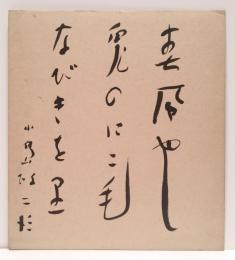 春風や
兎のにこ毛
なびきを里
小島政二郎